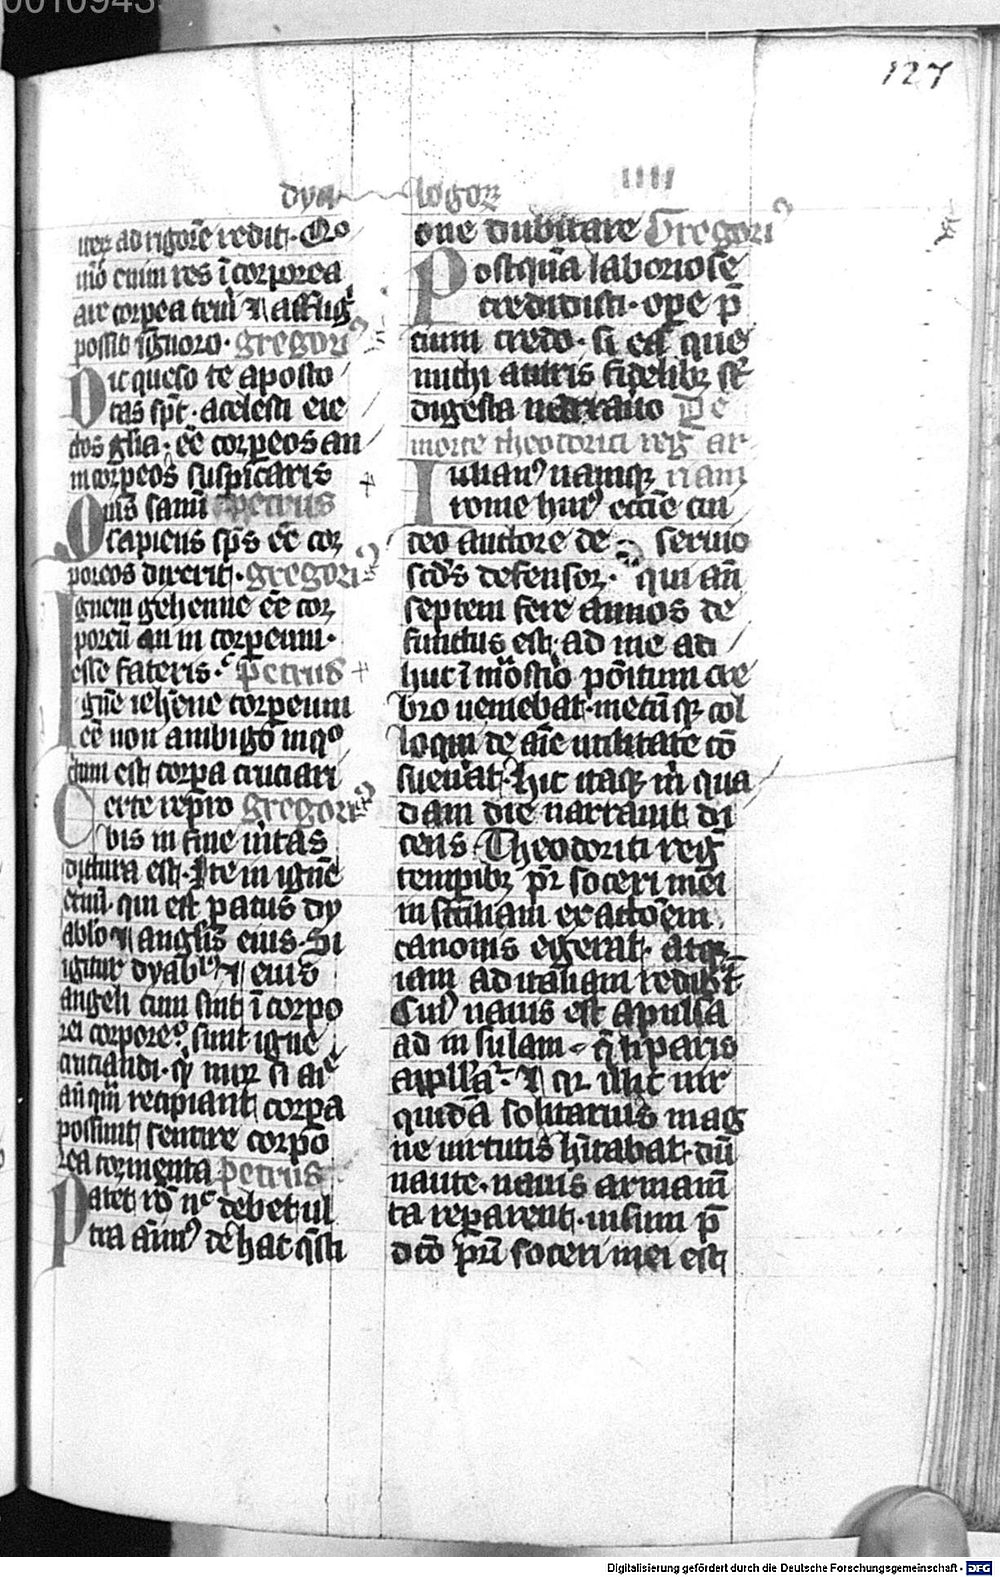 127
dya logoꝝ
IIII
iteꝝ ad rigorē rediit. Quo
mō enim res ī corporea
possit ignoro. Gregori⁹
Dic queso te aposto
tas sp̄c. a celesti eie
ctos gl̄ia. eē corꝑeos an
incorꝑeos suspicaris
Quis sanū Petrus
sapiens sp̄s eē coꝛ
poreos dixerit. Gregori⁹
Ignem gehenne eē coꝛ
poreū an incorꝑeum.
esse fateris. Petrus
Ignē iehēne corꝑeum
eē non ambigo in qͦ
dum est corꝑa cruciari
Certe repro Gregori⁹
bis in fine v̄itas
dictura est. Ite in ignē
etnū. qui est ꝑatus dy
ablo ⁊ angl̄is eius. Si
igitur dyabl⁹ ⁊ eius
angeli cum sint ī corpo
rei corpore⁹ sunt igne
cruciandi. qͥ miꝝ si aīe
anq̄m recipiant corꝑa
possunt sentire corpo
rea tormenta Petrus
Patet rō nͨ debet ul
tra anim⁹ de hac q̄sti
one dubitare Gregori⁹
Postquā laboriose
credidisti. oꝑe p̄
cium credo. si ea que
michi a uiris fidelibꝫ st̄
digesta narrauo De
morte theodorici reg̅ ar
Iulian⁹ namqꝫ nam
rome hui⁹ eccīe cui
deo auctore de seruio
scd̄s defensoꝝ. qui an̄
septem fere annos de
functus est. ad me ad
huc ī mōstio pōitum cre
bro veniebat. mecūqꝫ col
loqui de aīe utilitate cō
sueuat. hic itaqꝫ m̄ qua
dam die narrauit di
cens. Theodoriti reg̅
tempibꝫ pr̄ soceri mei
in siciliam exactōem
canonis egerat. atqꝫ
iam ad italiam redibͣt
Cui⁹ nauis est apulsa
ad insulam. q̄ liparis
appll̄at. ⁊ qꝛ illic uir
quidā solitarius mag
ne uirtutis hītabat. dū
naute. nauis armam̄
ta reparent. uisum p̄
dc̄o pr̄i soceri mei est
Digitalisierung gefördert durch die Deutsche Forschungsgemeinschaft - DFG